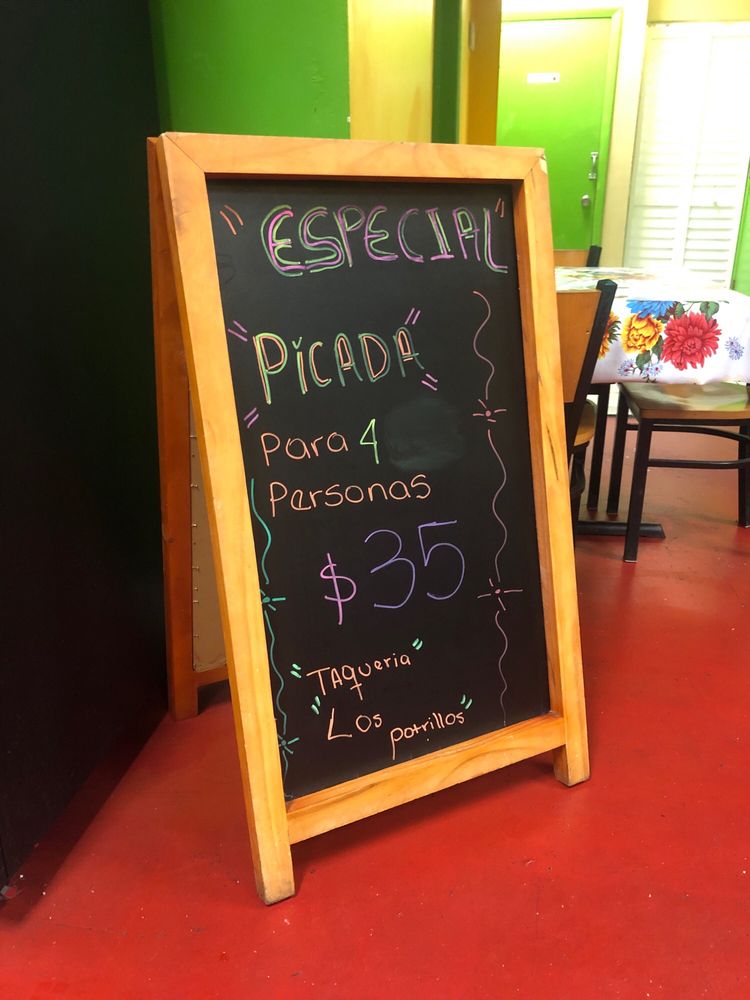 "ESPECIAL"
"PiCADA"
Para 4
Personas
$35
"TAqueria"
"Los potrillos"